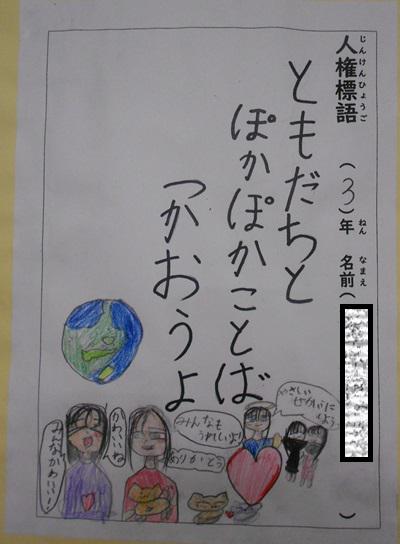 人権標語
じんけんひょうご
(3)年 名前( )
ねん なまえ
ともだちと
ぽかぽかことば
つかおうよ
やさしい
せかいにしよう
みんなも
うれしいよ!
ありがとう
かわいいね
みんなかわいい!